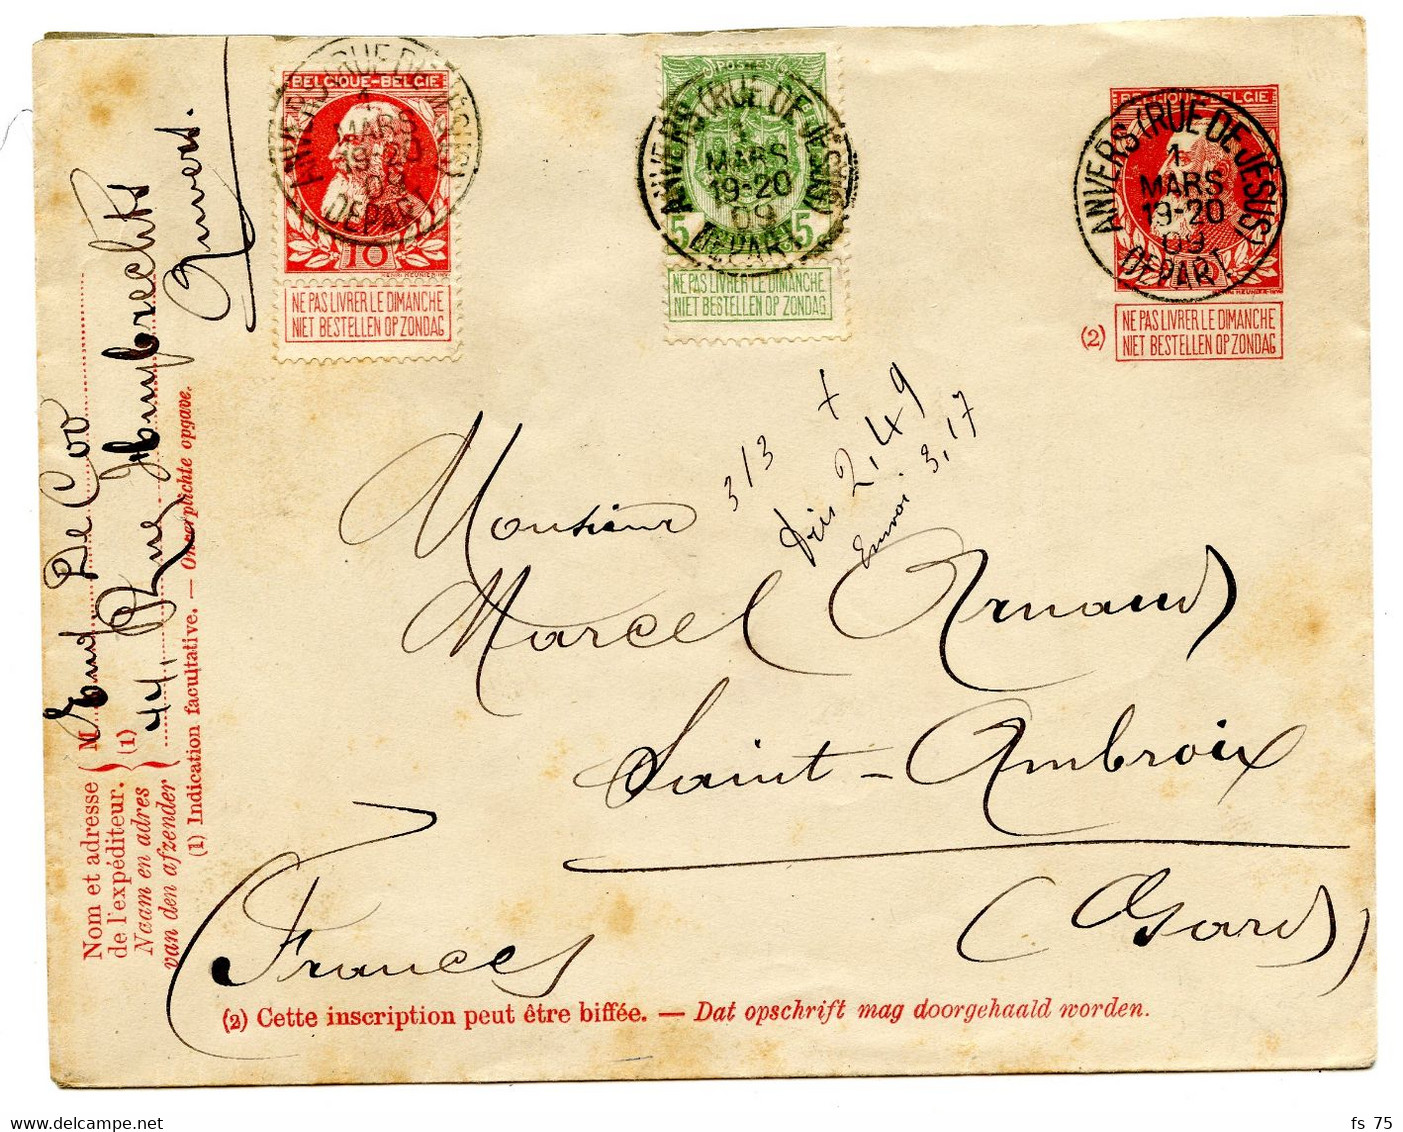 BELGIQUE-BELGIE
10
HENRI MEUNIER INV.
NE PAS LIVRER LE DIMANCHE
NIET BESTELLEN OP ZONDAG
ANVERS (RUE DE JÉSUS)
1
MARS
19-20
09
DEPART
POSTES
5 5
NE PAS LIVRER LE DIMANCHE
NIET BESTELLEN OP ZONDAG
ANVERS (RUE DE JÉSUS)
1
MARS
19-20
09
DEPART
BELGIQUE-BELGIE
10
ANVERS (RUE DE JÉSUS)
1
MARS
19-20
09
DEPART
(2) NE PAS LIVRER LE DIMANCHE
NIET BESTELLEN OP ZONDAG
3/3 +
2,49
Envoi 3,17
Monsieur
Marcel Arnaud
Saint-Ambroix
(Gard)
(France)
Nom et adresse
de l'expéditeur.
Naam en adres
van den afzender
(1)
M De Coo
44, Rue Huybrechts
Anvers.
(1) Indication facultative. — Onverplichte opgave.
(2) Cette inscription peut être biffée. — Dat opschrift mag doorgehaald worden.
fs 75
delcampe.net